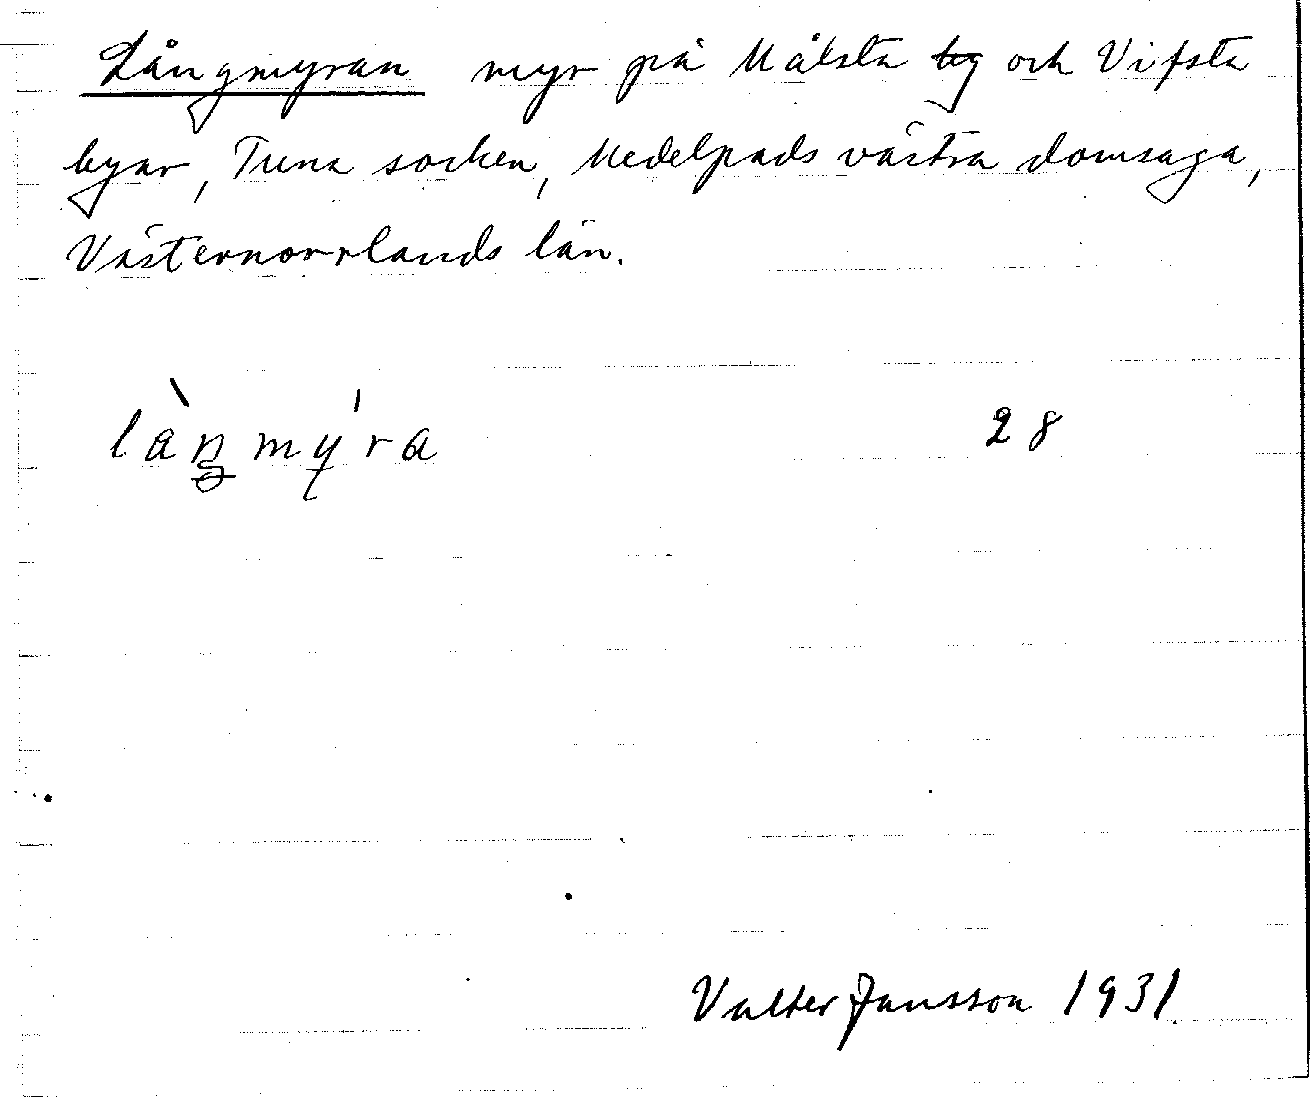 Långmyran myr på Målsta by och Vifsta
byar, Tuna socken, Medelpads västra domsaga,
Västernorrlands län.
làŋmý̢ra 28
Valter Jansson 1931